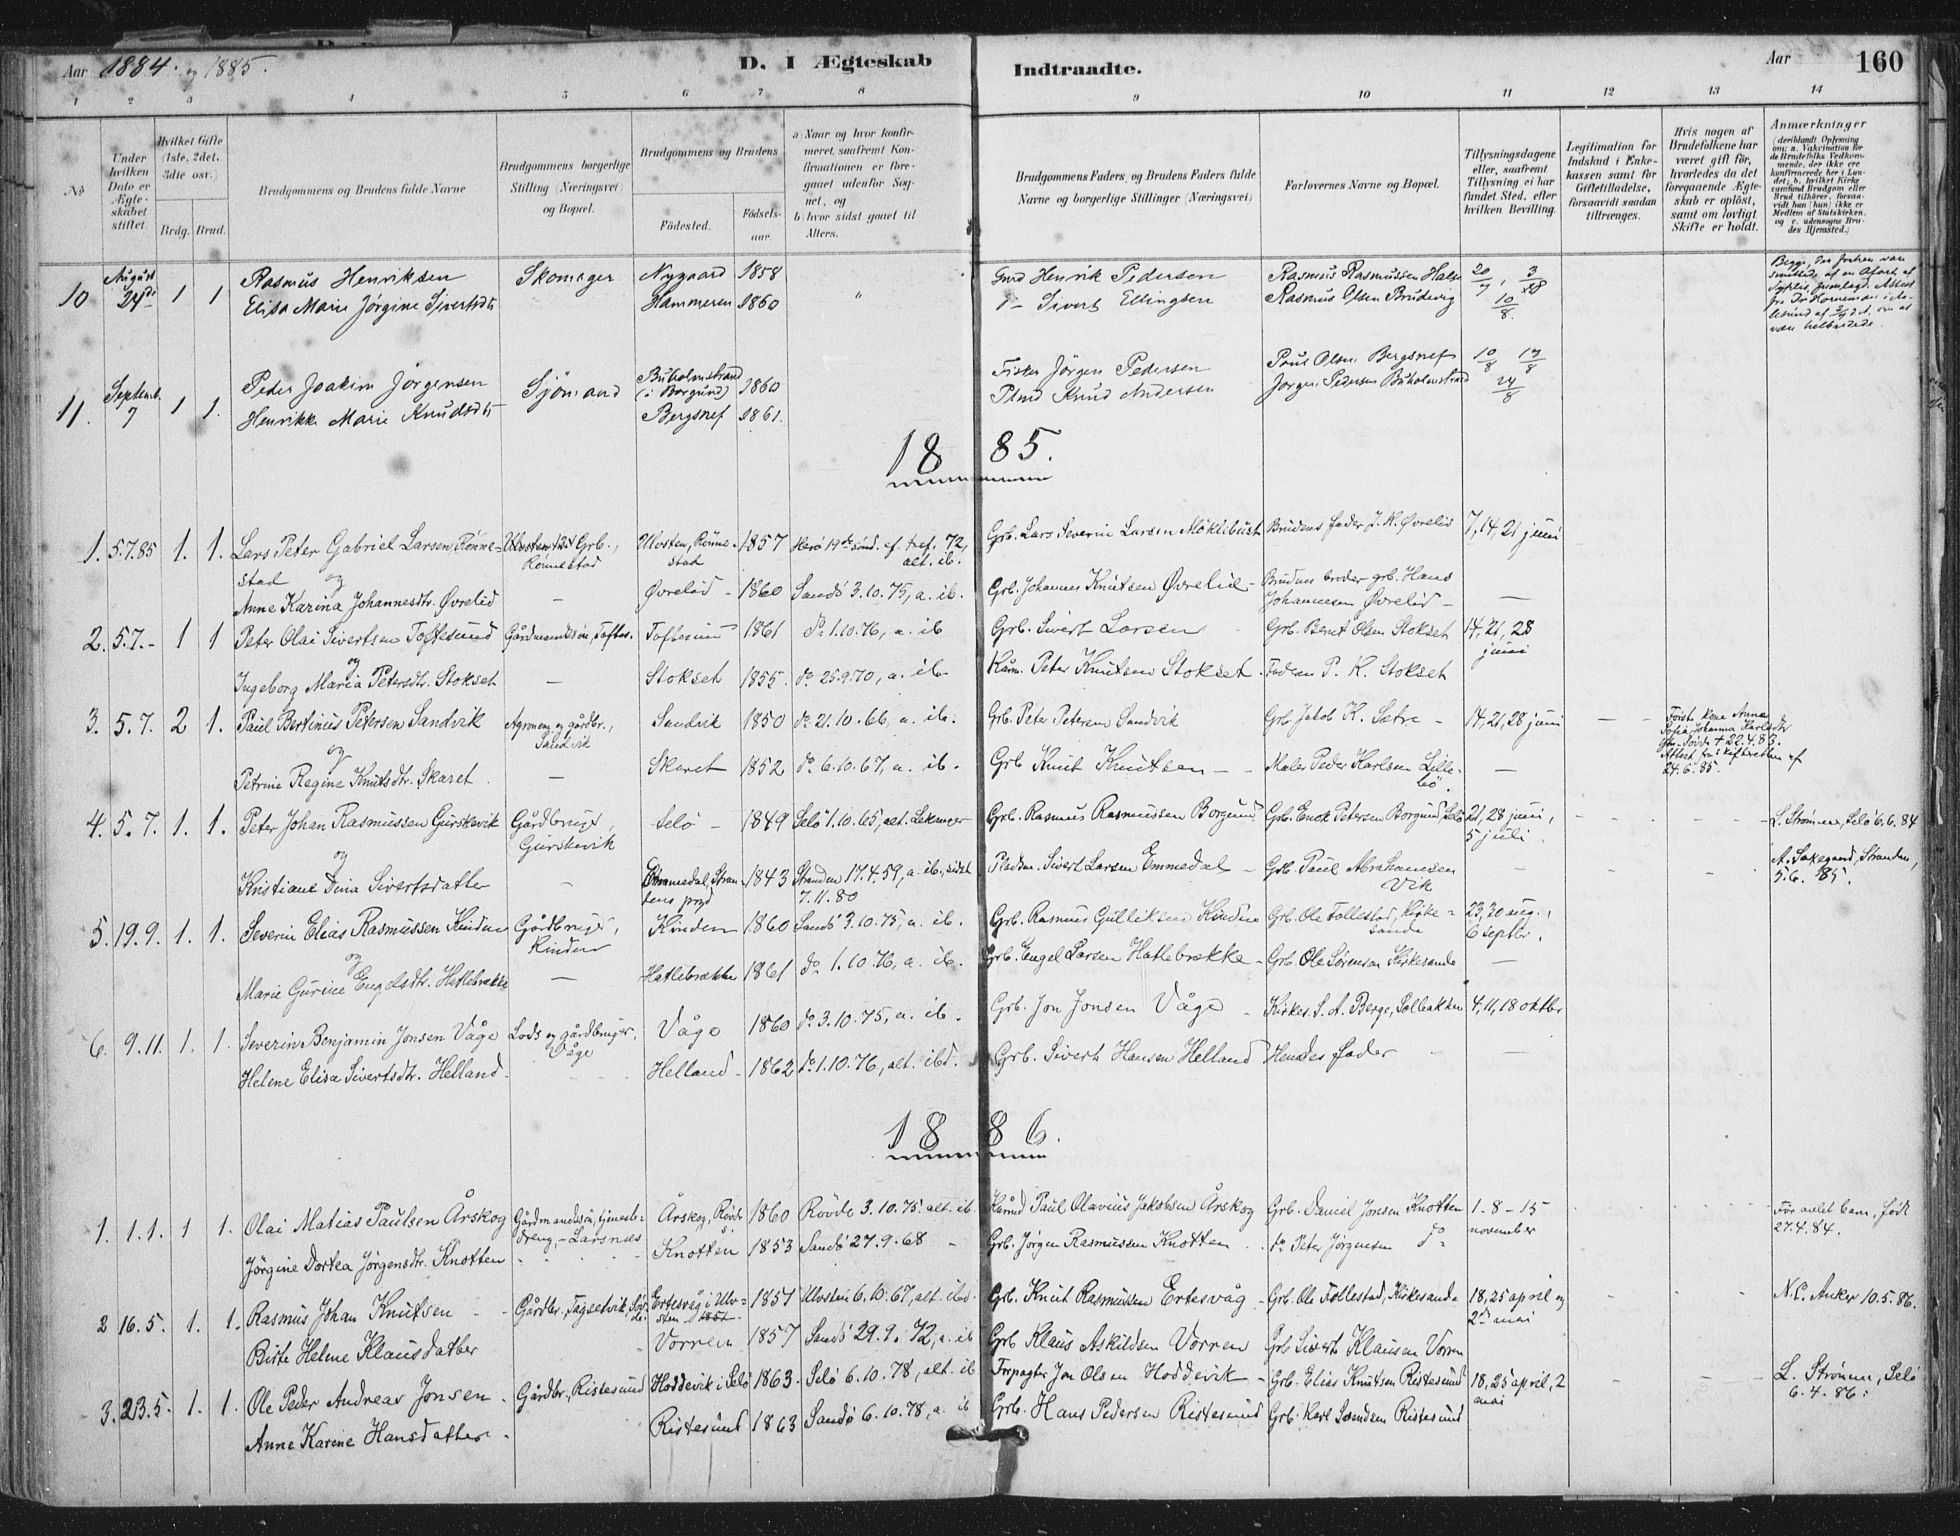 Aar 1884. og 1885.
D. I Ægteskab Indtraadte.
Aar 160
1 2 3 4 5 6 7 8 9 10 11 12 13 14
No
Under hvilken Dato er Ægteskabet stiftet.
Hvilket Gifte (1ste, 2det, 3die osv.)
Brdg. Brud.
Brudgommens og Brudens fulde Navne
Brudgommens borgerlige Stilling (Næringsvei) og Bopæl.
Brudgommens og Brudens
Fødested. Fødselsaar.
a) Naar og hvor konfirmeret, saafremt Konfirmationen er foregaaet udenfor Sognet, og
b) hvor sidst gaaet til Alters.
Brudgommens Faders, og Brudens Faders fulde Navne og borgerlige Stillinger (Næringsvei)
Forlovernes Navne og Bopæl.
Tillysningsdagene eller, saafremt Tillysning ei har fundet Sted, efter hvilken Bevilling.
Legitimation for Indskud i Enkekassen samt for Giftetilladelse, forsaavidt saadan tiltrænges.
Hvis nogen af Brudefolkene har været gift før, hvorledes da det foregaaende Ægteskab er opløst, samt om lovligt Skifte er holdt.
Anmærkninger
10 August 24de 1 1 Rasmus Henriksen Skomager Nygaard 1858 " Gmd Henrik Pedersen Rasmus Rasmussen 20/7, 3/8
Elisa Marie Jørgine Sivertsdt Hammeren 1860 Sivert Ellingsen Rasmus Olsen Brudevig 10/8.
11. Septemb. 7 1 1. Peder Joakim Jørgensen Sjømand Buholmstrand (i Borgund) 1860 Fisker Jörgen Pedersen Poul Olsen Bergsnef 10/8 17/8
Henrikke Marie Knudsdt Bergsnef 1861. Knud Andersen Jørgen Pedersen Buholmstrand 24/8
1885.
1. 5.7.85 1. 1. Lars Peter Gabriel Larsen Rönnestad Grb., Rönnestad Ulvsten, Rönnestad 1857 Herø 19de sönd. ef. tref. 72, alt. ib. Grb. Lars Severin Larsen Möklebust Brudens fader J. K. Øvrelid 7, 14, 21 juni
og
Anne Karina Johannesdtr. Øvrelid — Øvrelid 1860 Sandö 3.10.75, a. ib. Grb. Johannes Knutsen Øvrelid Brudens broder grb. Hans Johannesen Øvrelid —
2. 5.7.- 1 1 Peter Olai Sivertsen Toftesund Gårdmandssön, Toftes. Toftesund 1861 do 1.10.76, a. ib Grb. Sivert Larsen Grb. Bent Olsen Stokset 14, 21, 28 juni
og
Ingeborg Maria Petersdtr. Stokset — Stokset 1855. do 25.9.70, a. ib. Kårm. Peter Knutsen Stokset. Faderen P. K. Stokset
3. 5.7. 2 1. Paul Bertinus Petersen Sandvik Agronom og gårdbr., Sandvik Sandvik 1850 do 21.10.66, a. ib. Grb. Peter Petersen Sandvik Grb. Jakob K. Sætre 14, 21, 28 juni — — Förste kone Anne Sofia Johanna Karlsdtr + 22.4.85. Attest fra skifteretten af 24.6.85.
og
Petrine Regine Knutsdtr. Skaret — Skaret 1852 do 6.10.67, a. ib. Grb Knut Knutsen Maler Peder Karlsen Lillebö. —
4. 5.7. 1. 1. Peter Johan Rasmussen Gurskevik Gårdbruger, Gurskevik Selö 1849 Selö 1.10.65, alt. Grb. Rasmus Rasmussen Borgund Grb. Enok Petersen Borgund, Selö 21, 28 juni, 5 juli L. Strömme, Selö 6.6.84
og
Kristiane Dina Sivertsdatter — Emmedal, Strandens prgd 1843 Stranden 17.4.59, a. ib., sidst 7.11.80 Pladsm. Sivert Larsen Emmedal Grb. Paul Abrahamsen Vik Stranden, 5.6.85.
5. 19.9. 1. 1. Severin Elias Rasmussen Hinden Gårdbruger, Hinden Hinden 1860 Sandö 3.10.75, a. ib. Grb. Rasmus Gulliksen Hinden Grb. Ole Follestad, Kirkesande 23, 30 aug., 6 septbr.
og
Marie Gurine Engelsdtr. Hatlebrække — Hatlebrække 1861 do 1.10.76, a. ib. Grb. Engel Larsen Hatlebrække Grb. Ole Sörensen Kirkesande —
6. 9.11. 1. 1. Severin Benjamin Jonsen Våge Lods og gårdbruger, Våge Våge 1860 do 3.10.75, a. ib. Grb. Jon Jonsen Våge Kirkes. S. A. Berge, Solbakken 4, 11, 18 oktbr
Helene Elisa Sivertsdtr. Helland Helland 1862 do 1.10.76, alt. ibd. Grb. Sivert Hansen Helland Hendes fader —
1886.
1. 1.1. 1 1. Olai Matias Paulsen Årskog Gårdmandssön, tjenestedreng, Larsnes Årskog, Rövde 1860 Rövde 3.10.75. alt. ib Kårmd Paul Olavius Jakobsen Årskog Grb. Daniel Jonsen Knotten 1-8-15 november Før avlet barn, født 27.4.84.
Jörgine Dortea Jörgensdtr. Knotten Knotten 1853 Sandö 27.9.68 Grb. Jörgen Rasmussen Knotten do Peter Jørgensen do
2 16.5. 1. 1. Rasmus Johan Knutsen Gårdbr., Ertesvåg i Ulvsten 1851 Ulvsten 6.10.67, alt. ibd. Grb. Knut Rasmussen Ertesvåg Grb. Ole Follestad, Kirkesande 18, 25 april og 2de mai N. C. Anker 10.5.86.
Birte Helene Klausdatter Vorren 1857 Sandö 29.9.72, a. ib Grb Klaus Askildsen Vorren Grb Sivert Klausen Vorren
3. 23.5. 1. 1. Ole Peder Andreas Jonsen Gårdbr., Ristesund Hoddevik i Selö 1863 Selö 6.10.78, alt. ib Forpagter Jon Olsen Hoddevik Grb. Elias Knutsen Ristesund 18, 25 april, 2 mai L. Strömme, Selö 6.4.86.
Anne Karine Hansdatter Ristesund 1863 Sandö 6.10.78, a. ib Grb. Hans Pedersen Ristesund Grb. Karl Ristesund